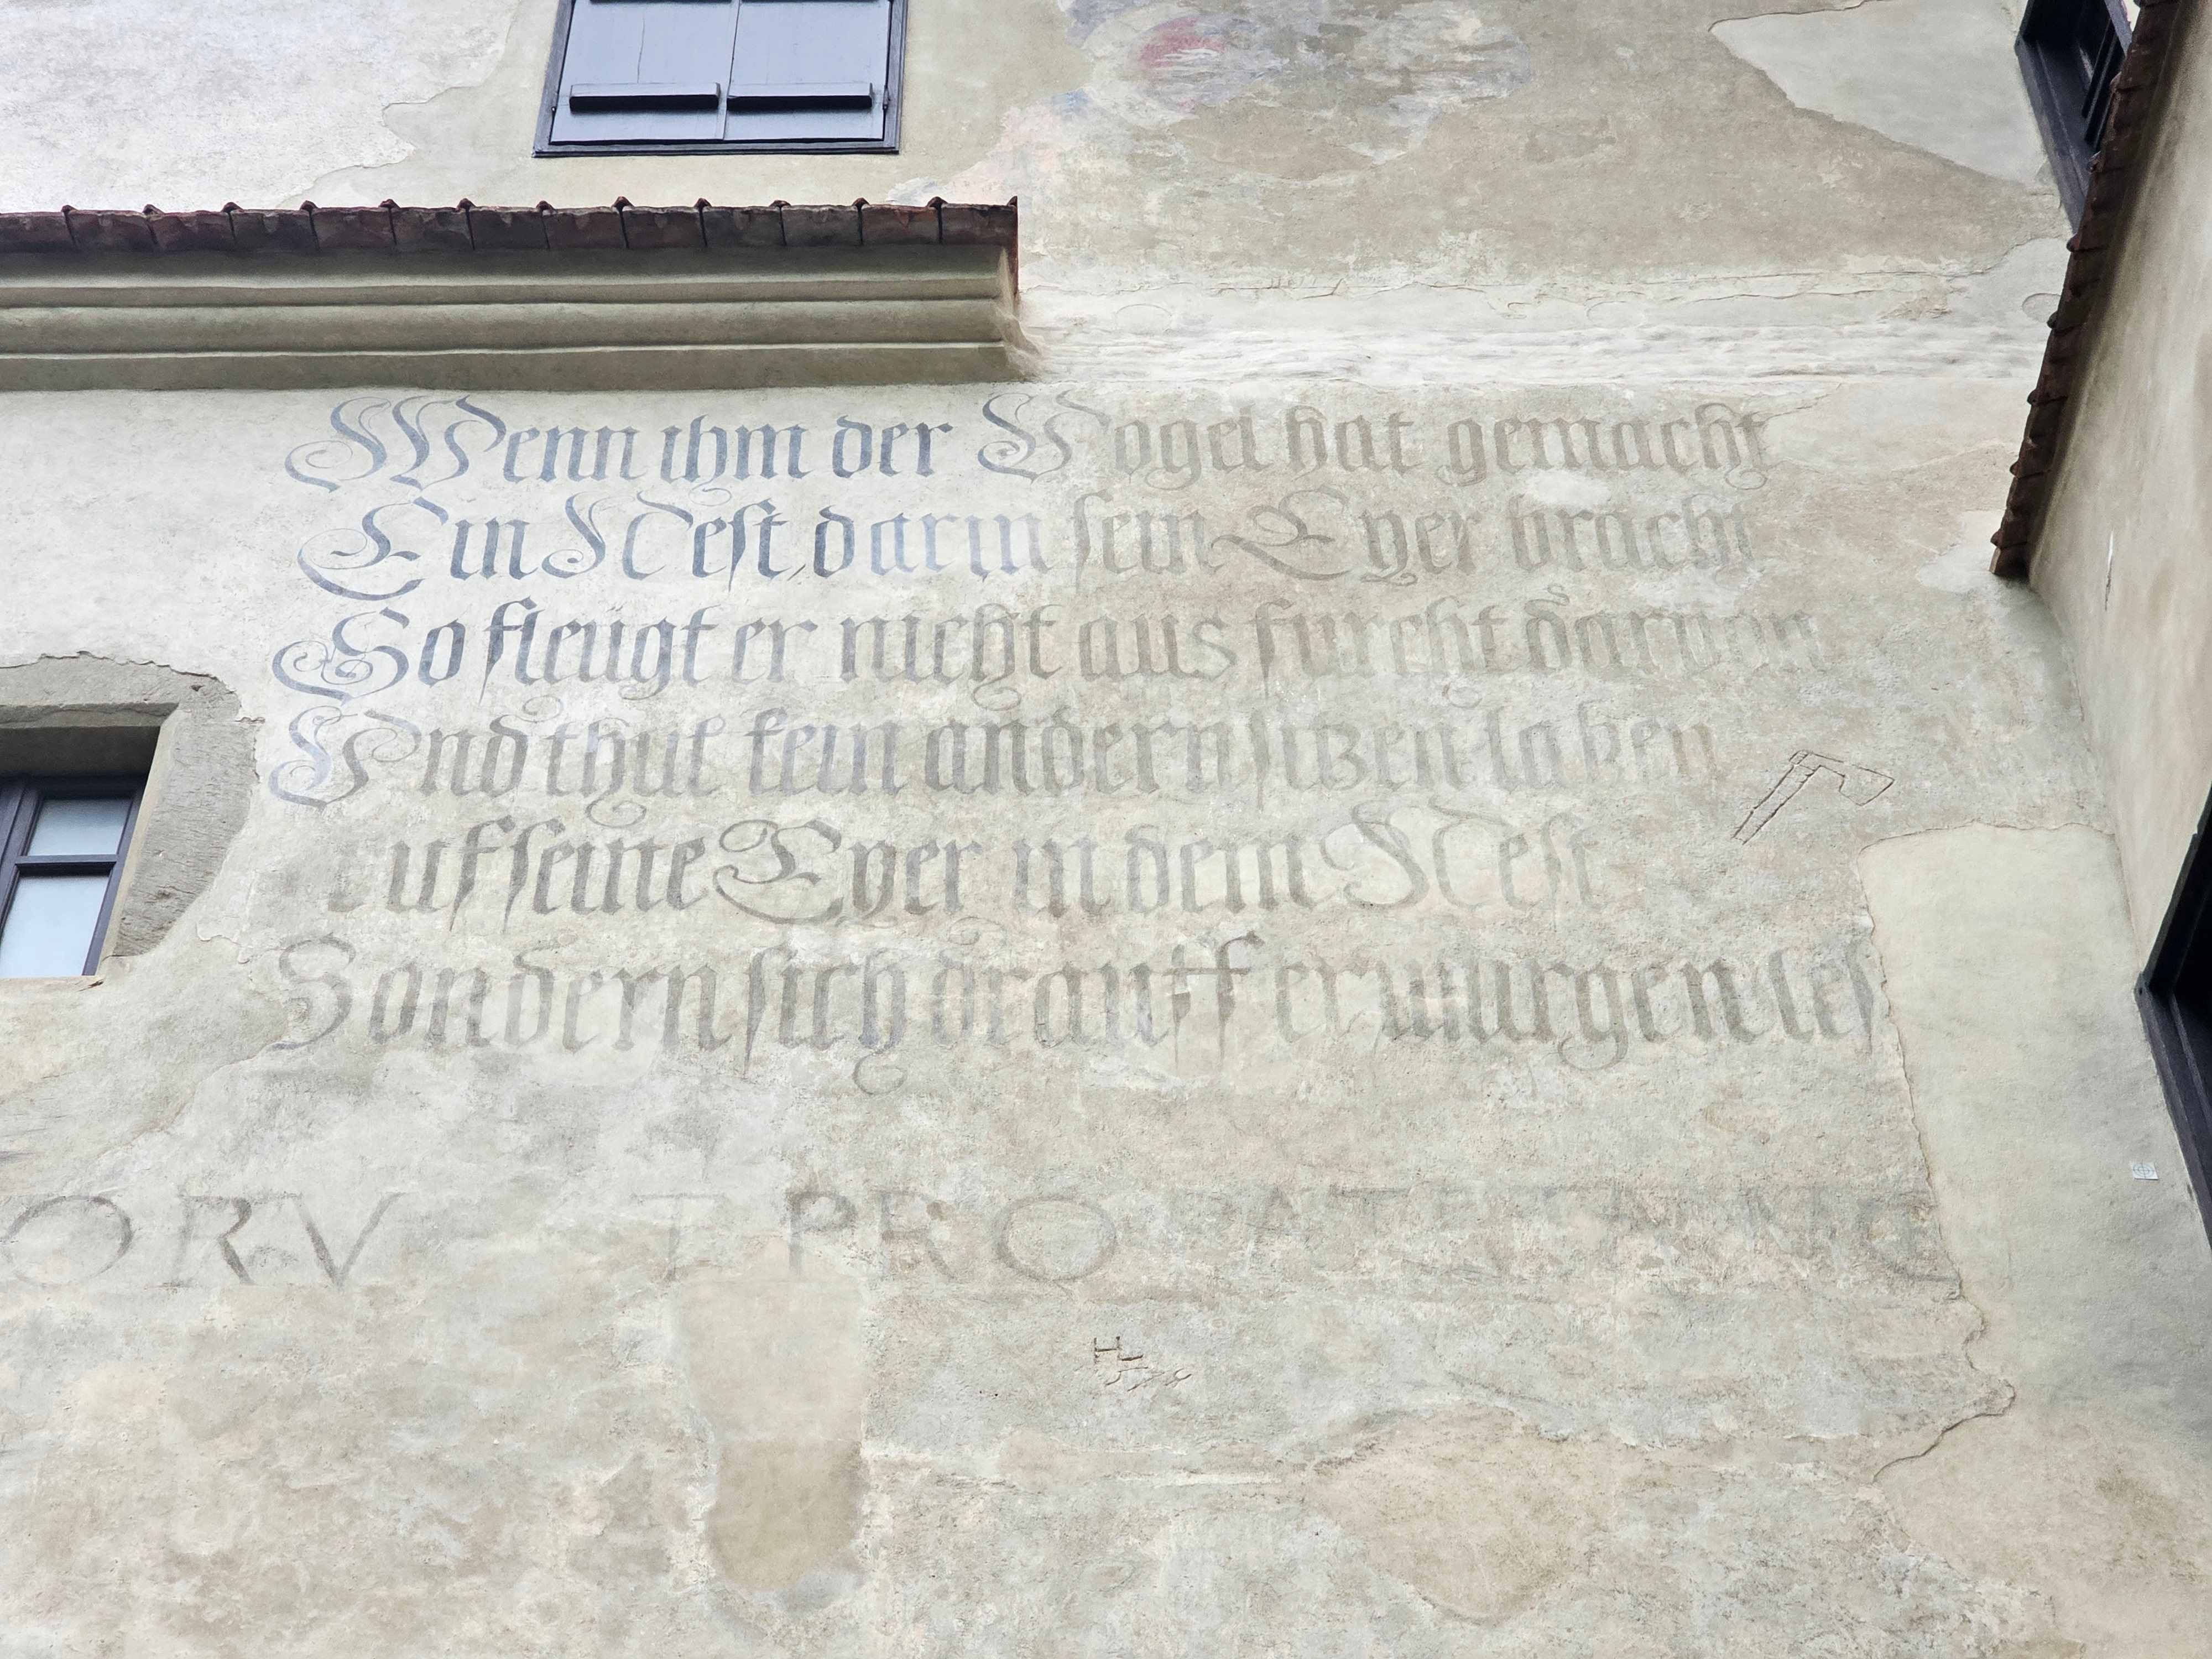 Wenn ihm der Vogel hat gemacht
Ein Nest, darin sein Eyer bracht
So fleügt er nicht aus furcht darvon
Und thut kein andern sitzen laßen
uf seine Eyer in dem Nest
Sondern sich drauff erwurgen les
ORV T PRO